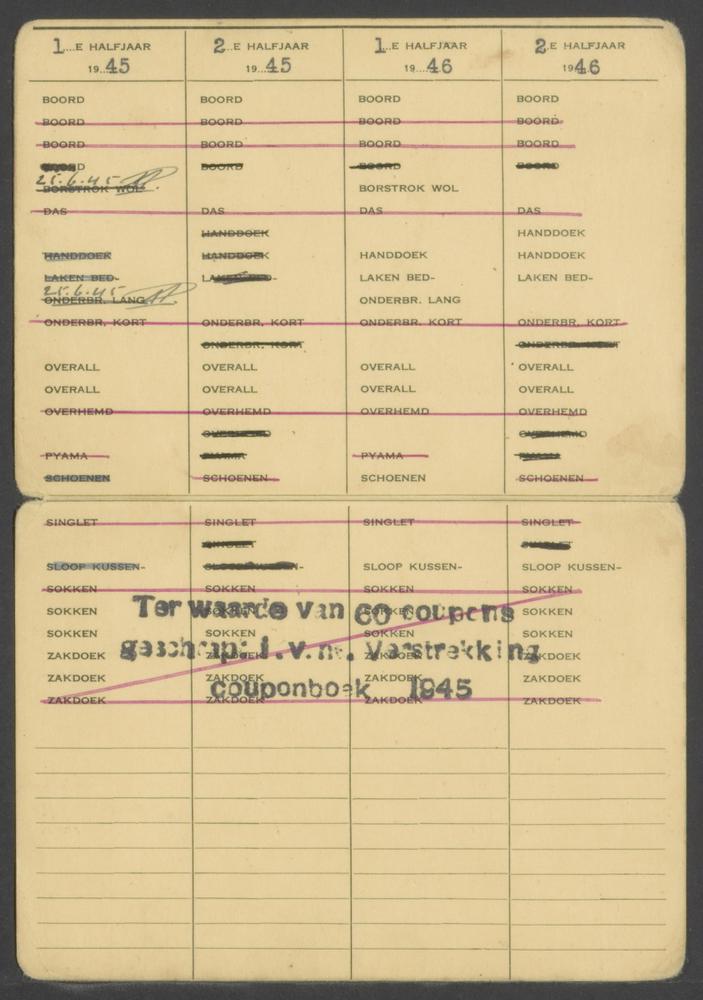 1...E HALFJAAR 2...E HALFJAAR 1...E HALFJAAR 2.E HALFJAAR
19...45 19...45 19...46 1946
BOORD BOORD BOORD BOORD
BOORD BOORD BOORD BOORD
BOORD BOORD BOORD BOORD
BOORD BOORD BOORD BOORD
25.6.45
BORSTROK WOL BORSTROK WOL
DAS DAS DAS DAS
HANDDOEK HANDDOEK
HANDDOEK HANDDOEK HANDDOEK HANDDOEK
LAKEN BED- LAKEN BED- LAKEN BED- LAKEN BED-
25.6.45
ONDERBR. LANG ONDERBR. LANG
ONDERBR. KORT ONDERBR. KORT ONDERBR. KORT ONDERBR. KORT
ONDERBR. KORT ONDERBR. KORT
OVERALL OVERALL OVERALL OVERALL
OVERALL OVERALL OVERALL OVERALL
OVERHEMD OVERHEMD OVERHEMD OVERHEMD
OVERHEMD OVERHEMD
PYAMA PYAMA
SCHOENEN SCHOENEN SCHOENEN SCHOENEN
SINGLET SINGLET SINGLET SINGLET
SINGLET SINGLET
SLOOP KUSSEN- SLOOP KUSSEN- SLOOP KUSSEN- SLOOP KUSSEN-
SOKKEN SOKKEN SOKKEN SOKKEN
SOKKEN SOKKEN SOKKEN SOKKEN
SOKKEN SOKKEN SOKKEN SOKKEN
ZAKDOEK ZAKDOEK ZAKDOEK ZAKDOEK
ZAKDOEK ZAKDOEK ZAKDOEK ZAKDOEK
ZAKDOEK ZAKDOEK ZAKDOEK ZAKDOEK
Ter waarde van 60 coupons
geschrapt i.v.m. Verstrekking
couponboek 1945